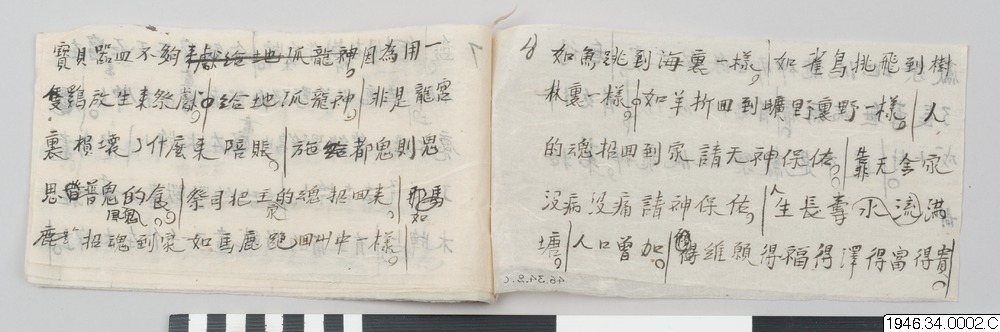 7
寶貝器皿不夠来獻给地爪龍神因為用一
隻鷄放生来祭獻给地爪龍神非是龍宮
裏損壞了什麽東陪賬施给都鬼則鬼
思普鬼的食祭司把主家的魂招回来那馬如
鹿招魂回魂到家一如馬鹿跑回山中一樣
8
如魚跳到海裏一樣如雀鳥挑飛到樹
林裏一樣如羊折回到曠野裏野一樣人
的魂招回到家請天神保佑靠天舍家
没病没痛請神保佑人生長壽水流满
塘人口曾加得維願得福得澤得富得貴
46.34.2.c
1946.34.0002.C